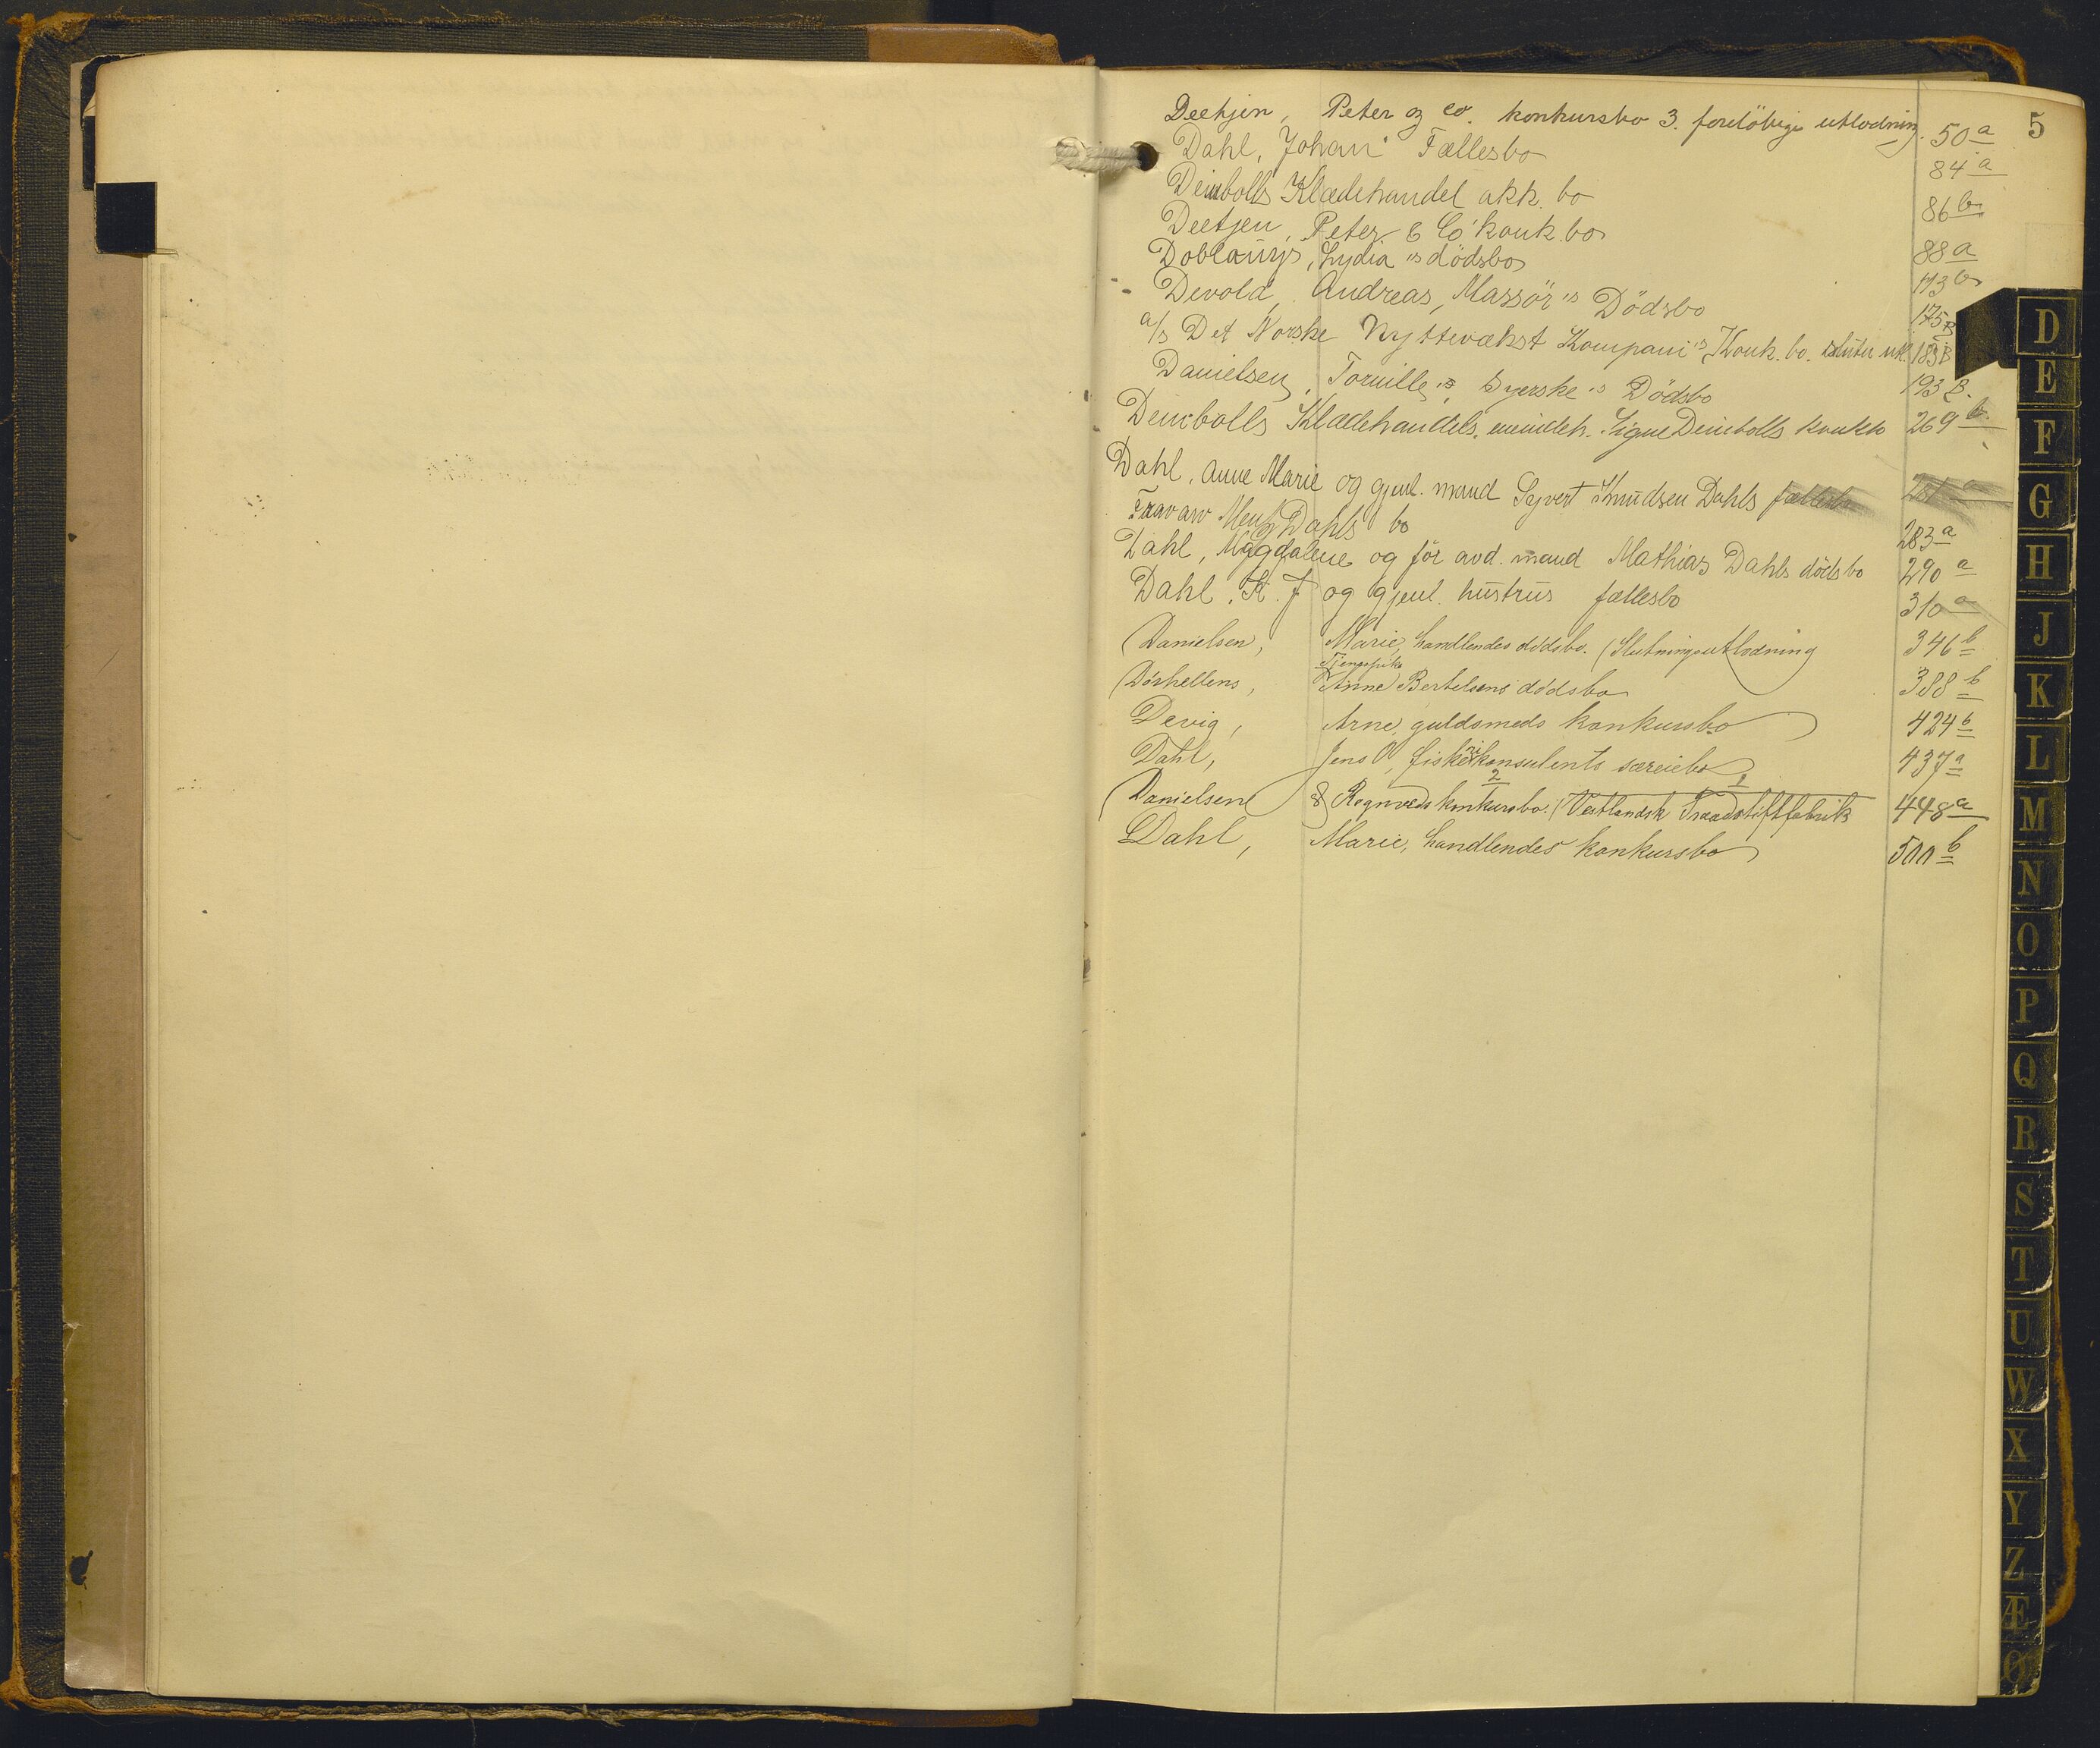 5
Deetjen, Peter og co. konkursbo 3. foreløbige utlodning. 50 a
Dahl, Johan Fællesbo 84 a
Deinbolls Klædehandel akk. bo 86 b
Deetjen, Peter & Co konk. bo 88 a
Lydia's dödsbo 173 b
Devold, Andreas, Massör's Dödsbo 175 B
a/s Det Norske Nyttevækst Kompani's Konk. bo. 183 B
Danielsen, Syerske's Dödsbo 193 B.
Deinbolls Klædehandels, eneindeh. Signe Deinbolls konkbo 269 b.
Dahl, Anne Marie og gjenl. mand Syvert Knudsen Dahls
Dahls bo 283 a
Dahl, Magdalene ogför avd. mand Mathias Dahls dödsbo 290 a
Dahl, K. J og gjenl. hustrus fællesbo 310 a
Danielsen, Marie, handlendes dødsbo. (Slutningsutlodning 346 b
Tjenepike
Dorhellens, Anne Bertelsens dødsbo 388 b
Devig, Arne, guldsmeds konkursbo 424 b
Dahl, Jens O, fiskerikonsulents særeiebo 437 a
2 1
Danielsen & Rognveds konkursbo. (Vestlandsk Traadstiftfabrik 448 a
Dahl, Marie, handlendes konkursbo 500 b
D
E
F
G
H
J
K
L
M
N
O
P
Q
R
S
T
U
W
X
Y
Z
Æ
Ø